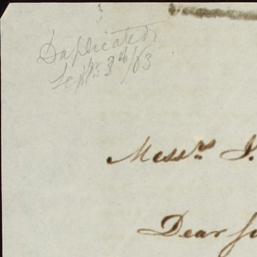 Duplicated
Sept. 3rd/63
Messrs. J.
Dear